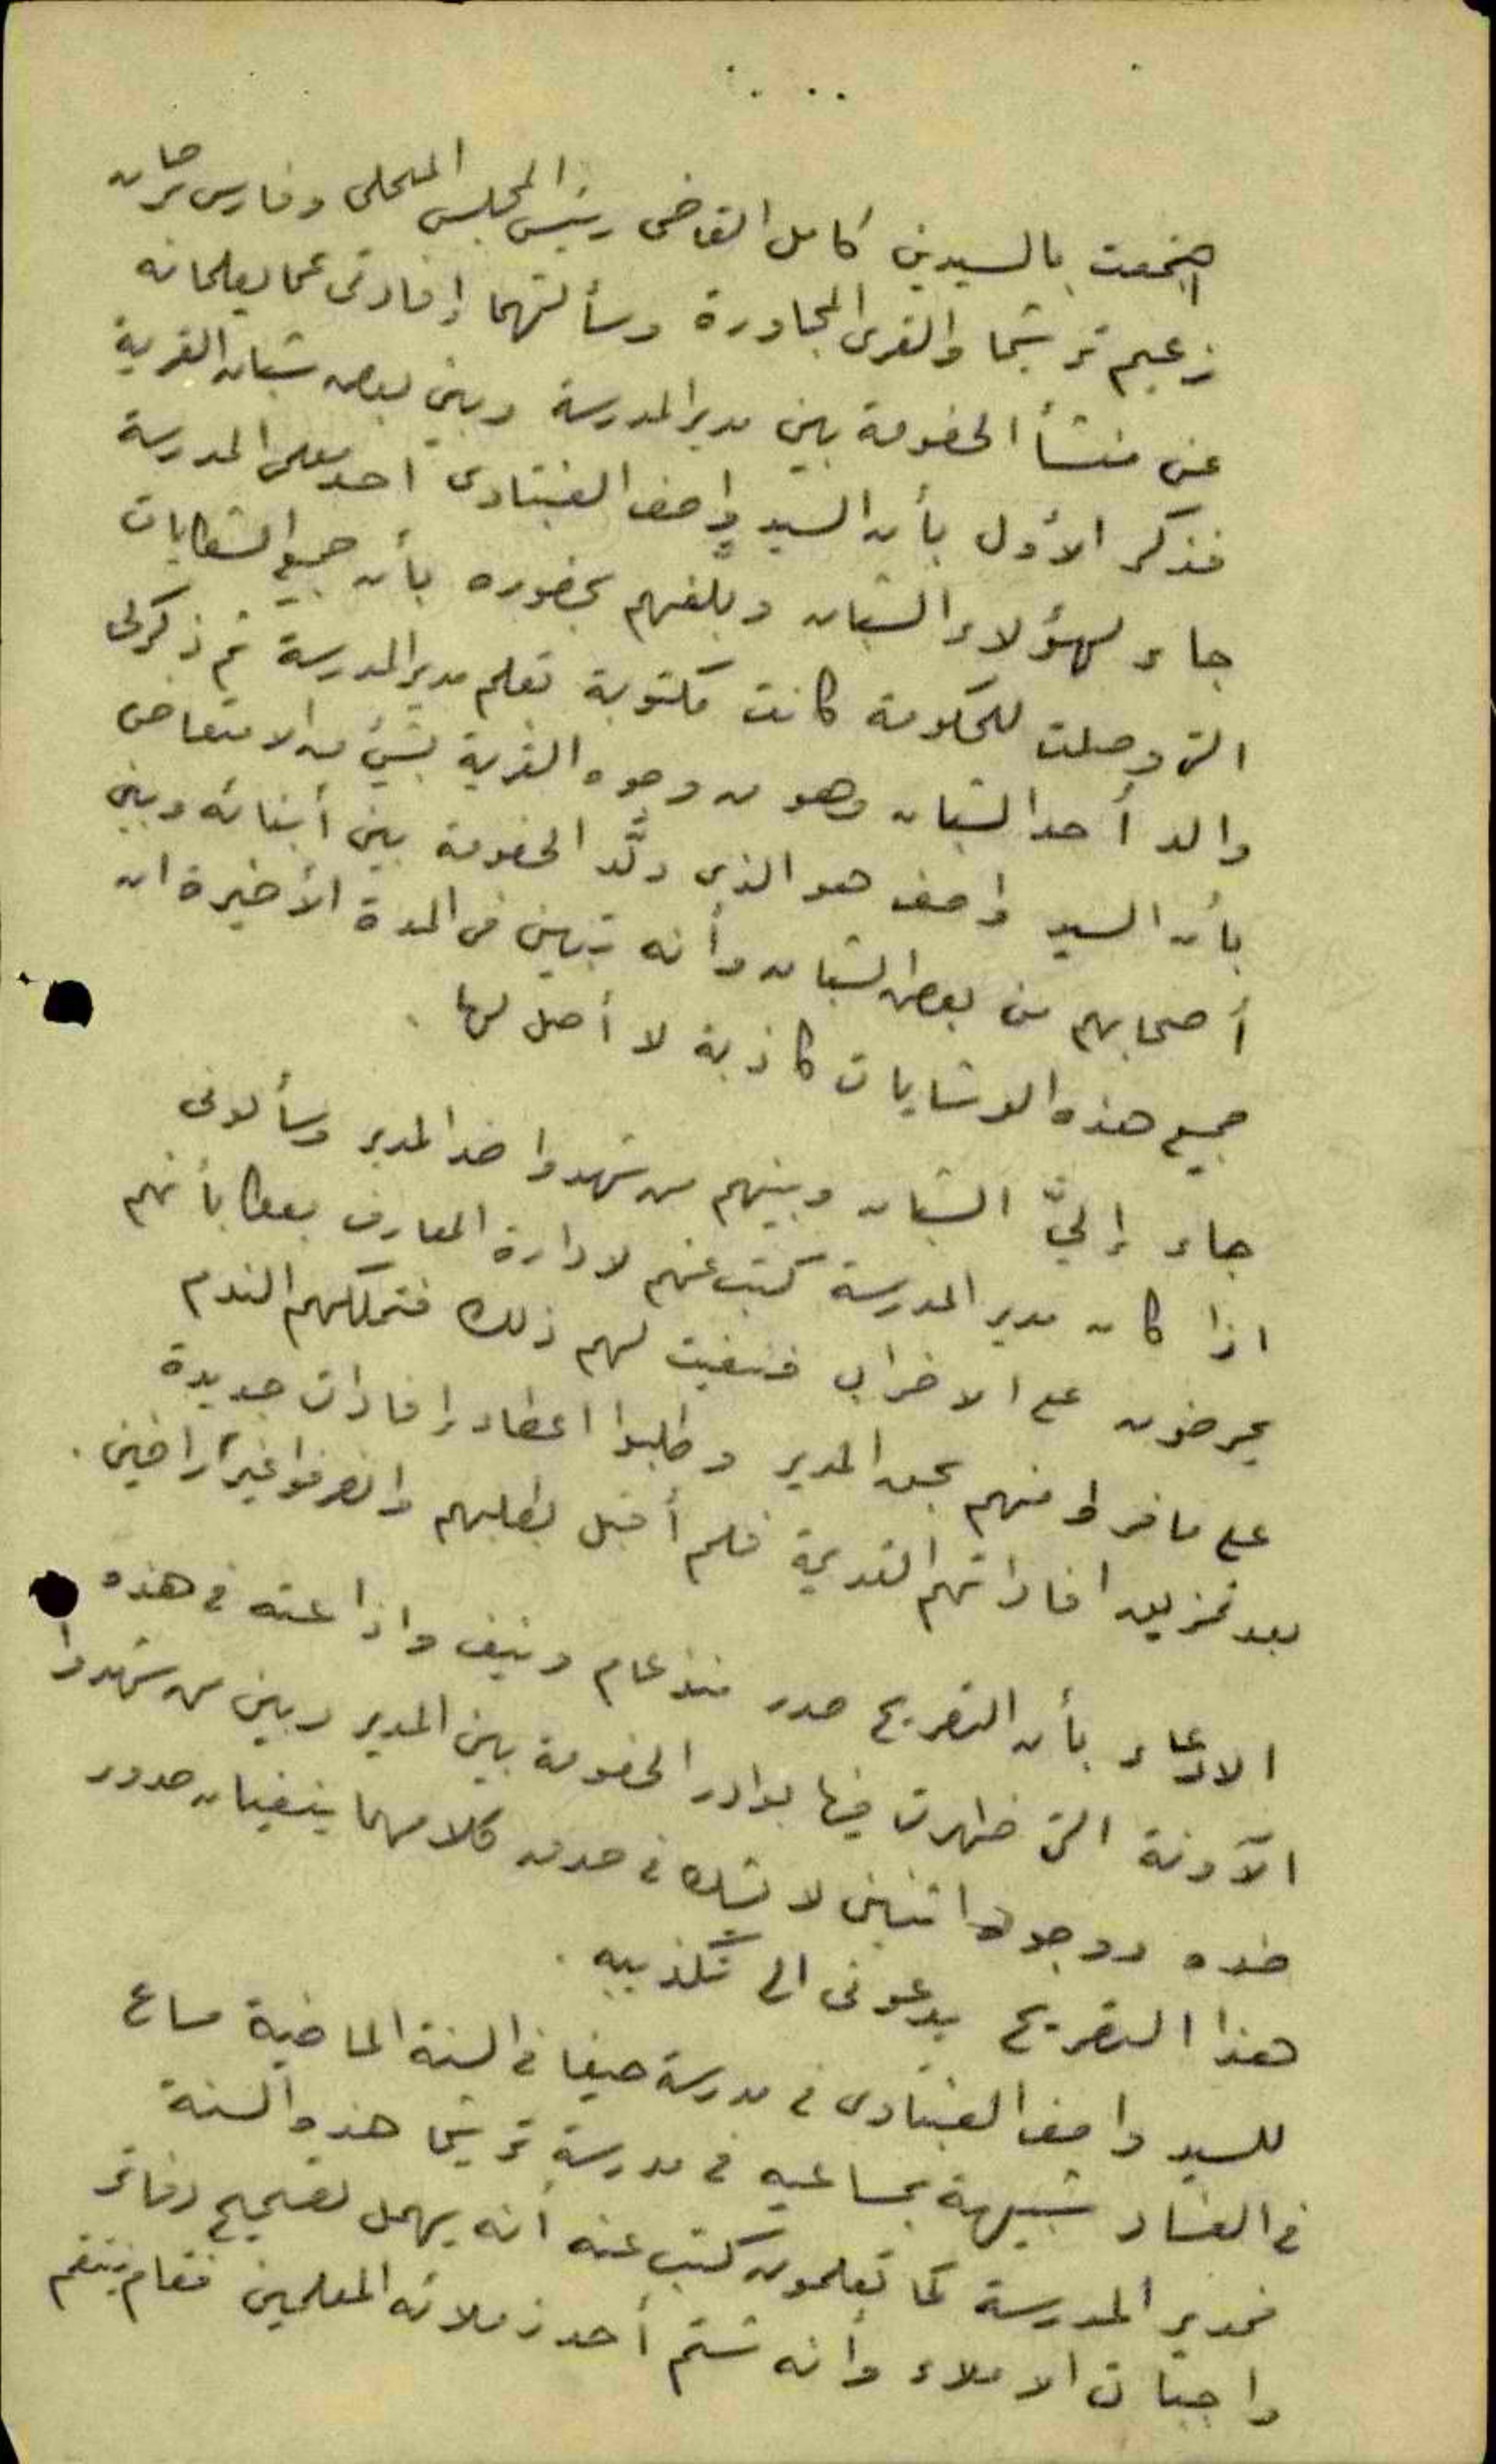 اجتمعت بالسيدين كامل القاضى رئيس المجلس المحلى وفارس سرحان
زعيم ترشيحا والقرى المجاورة وسألتهما إفادتى عما يعلمانه
عن منشأ الخصومة بين مدير المدرسة وبين بعض شبان القرية
فذكر الأول بأن السيد واصف العبتاوى أحد معلمى المدرسة
جاء لهؤلاء الشبان وبلّغهم بحضوره بأن جميع الشكايات
التى وصلت للحكومة كانت مكتوبة بقلم مدير المدرسة ثم ذكر لى
والد أحد الشبان وهو من وجوه القرية بشىء من الامتعاض
بأن السيد واصف هو الذى ولّد الخصومة بين أبنائه وبين
أصحابهم من بعض الشبان وأنه تبين فى المدة الأخيرة ان
جميع هذه الوشايات كاذبة لا أصل لها .
جاء إليّ الشبان وبينهم من شهدوا ضد المدير وسألونى
اذا كان مدير المدرسة كتب عنهم لادارة المعارف بأنهم
يحرضون على الاضراب فنفيت لهم ذلك فتملكهم الندم
على ما فرط منهم بحق المدير وطلبوا اعطاء إفادات جديدة
بعد تمزيق افاداتهم القديمة فلم أقبل بطلبهم وانصرفوا غير راضين .
الادعاء بأن التصريح صدر منذ عام ونيف واذاعته فى هذه
الآونة التى ظهرت فيها بوادر الخصومة بين المدير وبين من شهدوا
ضده ووجود اثنين لا يشك فى صدق كلامهما ينفيان صدور
هذا التصريح يدعونى الى تكذيبه .
للسيد واصف العبتاوى فى مدرسة حيفا فى السنة الماضية مساع
فى الفساد شبيهة بمساعيه فى مدرسة ترشيحا هذه السنة
فمدير المدرسة كما تعلمون كتب عنه أنه يهمل تصحيح دفاتر
واجبات الاملاء وأنه شتم أحد زملائه المعلمين فقام ينتقم